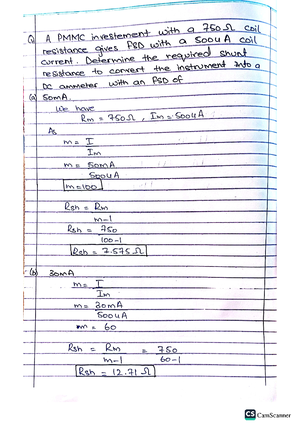 Q A PMMC investement with a 750Ω coil
resistance gives FSD with a 500uA coil
current. Determine the required shunt
resistance to convert the instrument into a
DC ammeter with an FSD of
(a) 50mA.
We have
Rm = 750Ω , Im = 500uA
As
m = I
Im
m = 50mA
500uA
m = 100
Rsh = Rm
m-1
Rsh = 750
100-1
Rsh = 7.575Ω
(b) 30mA
m = I
Im
m = 30mA
500uA
m = 60
Rsh = Rm = 750
m-1 60-1
Rsh = 12.71Ω
CS CamScanner